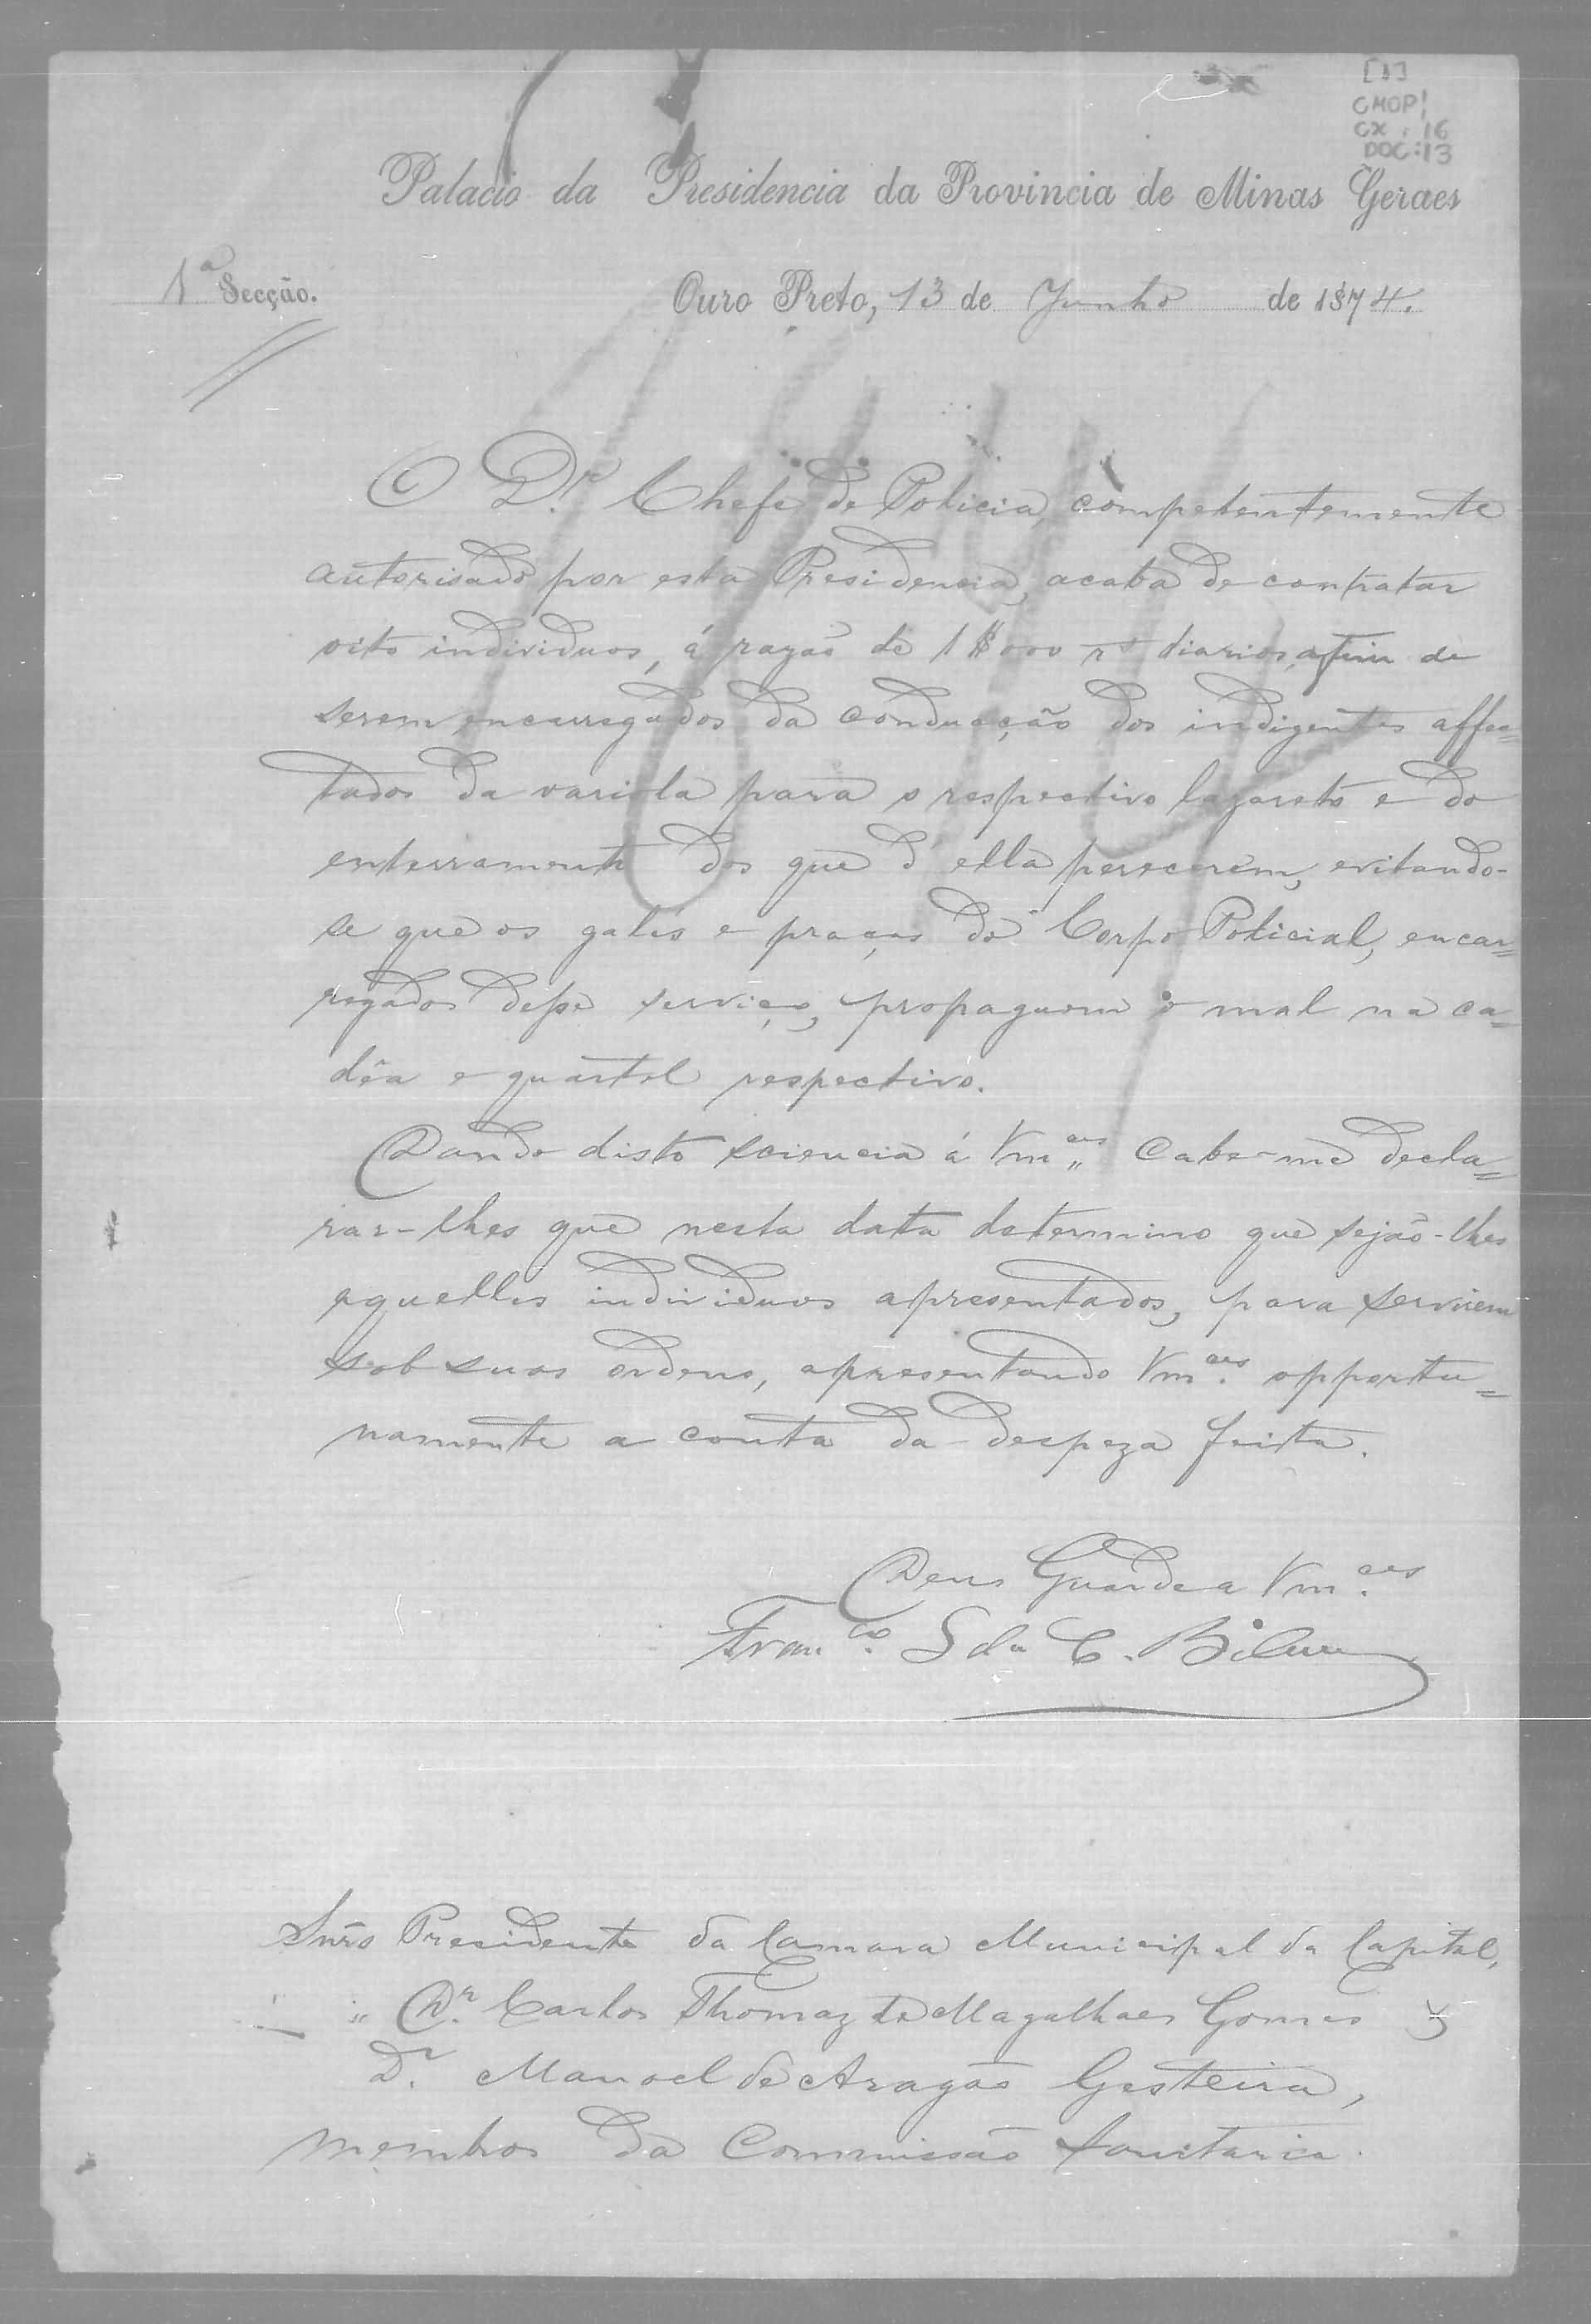 [1]
CMOP
CX: 16
DOC: 13
Palacio da Presidencia da Provincia de Minas Geraes
1ª Secção.
Ouro Preto, 13 de Junho de 1874.
O Dr. Chefe de Policia, competentemente
autorisado por esta Presidencia, acaba de contratar
oito individuos, á razão de 1$000 rs diarios, afim de
serem encarregados da conducção dos indigentes affec=
tados da variola para o respectivo lazareto e do
enterramento dos que d'ella perecerem, evitando-
se que os galés e praças do Corpo Policial, encar=
regados desse serviço, propaguem o mal na ca=
dêa e quartel respectivo.
Dando disto sciencia á Vmces cabe-me decla=
rar-lhes que nesta data determino que sejão-lhes
aquelles individuos apresentados, para servirem
sob suas ordens, apresentando Vmces opportu=
namente a conta da despeza feita.
Deus Guarde a Vmces
Franco. S da C.
Snrs Presidente da Camara Municipal da Capital,
" Dr. Carlos Thomaz de Magalhaes Gomes e
Dr. Manoel de Aragão Gesteira,
membros da Commissão Sanitaria.